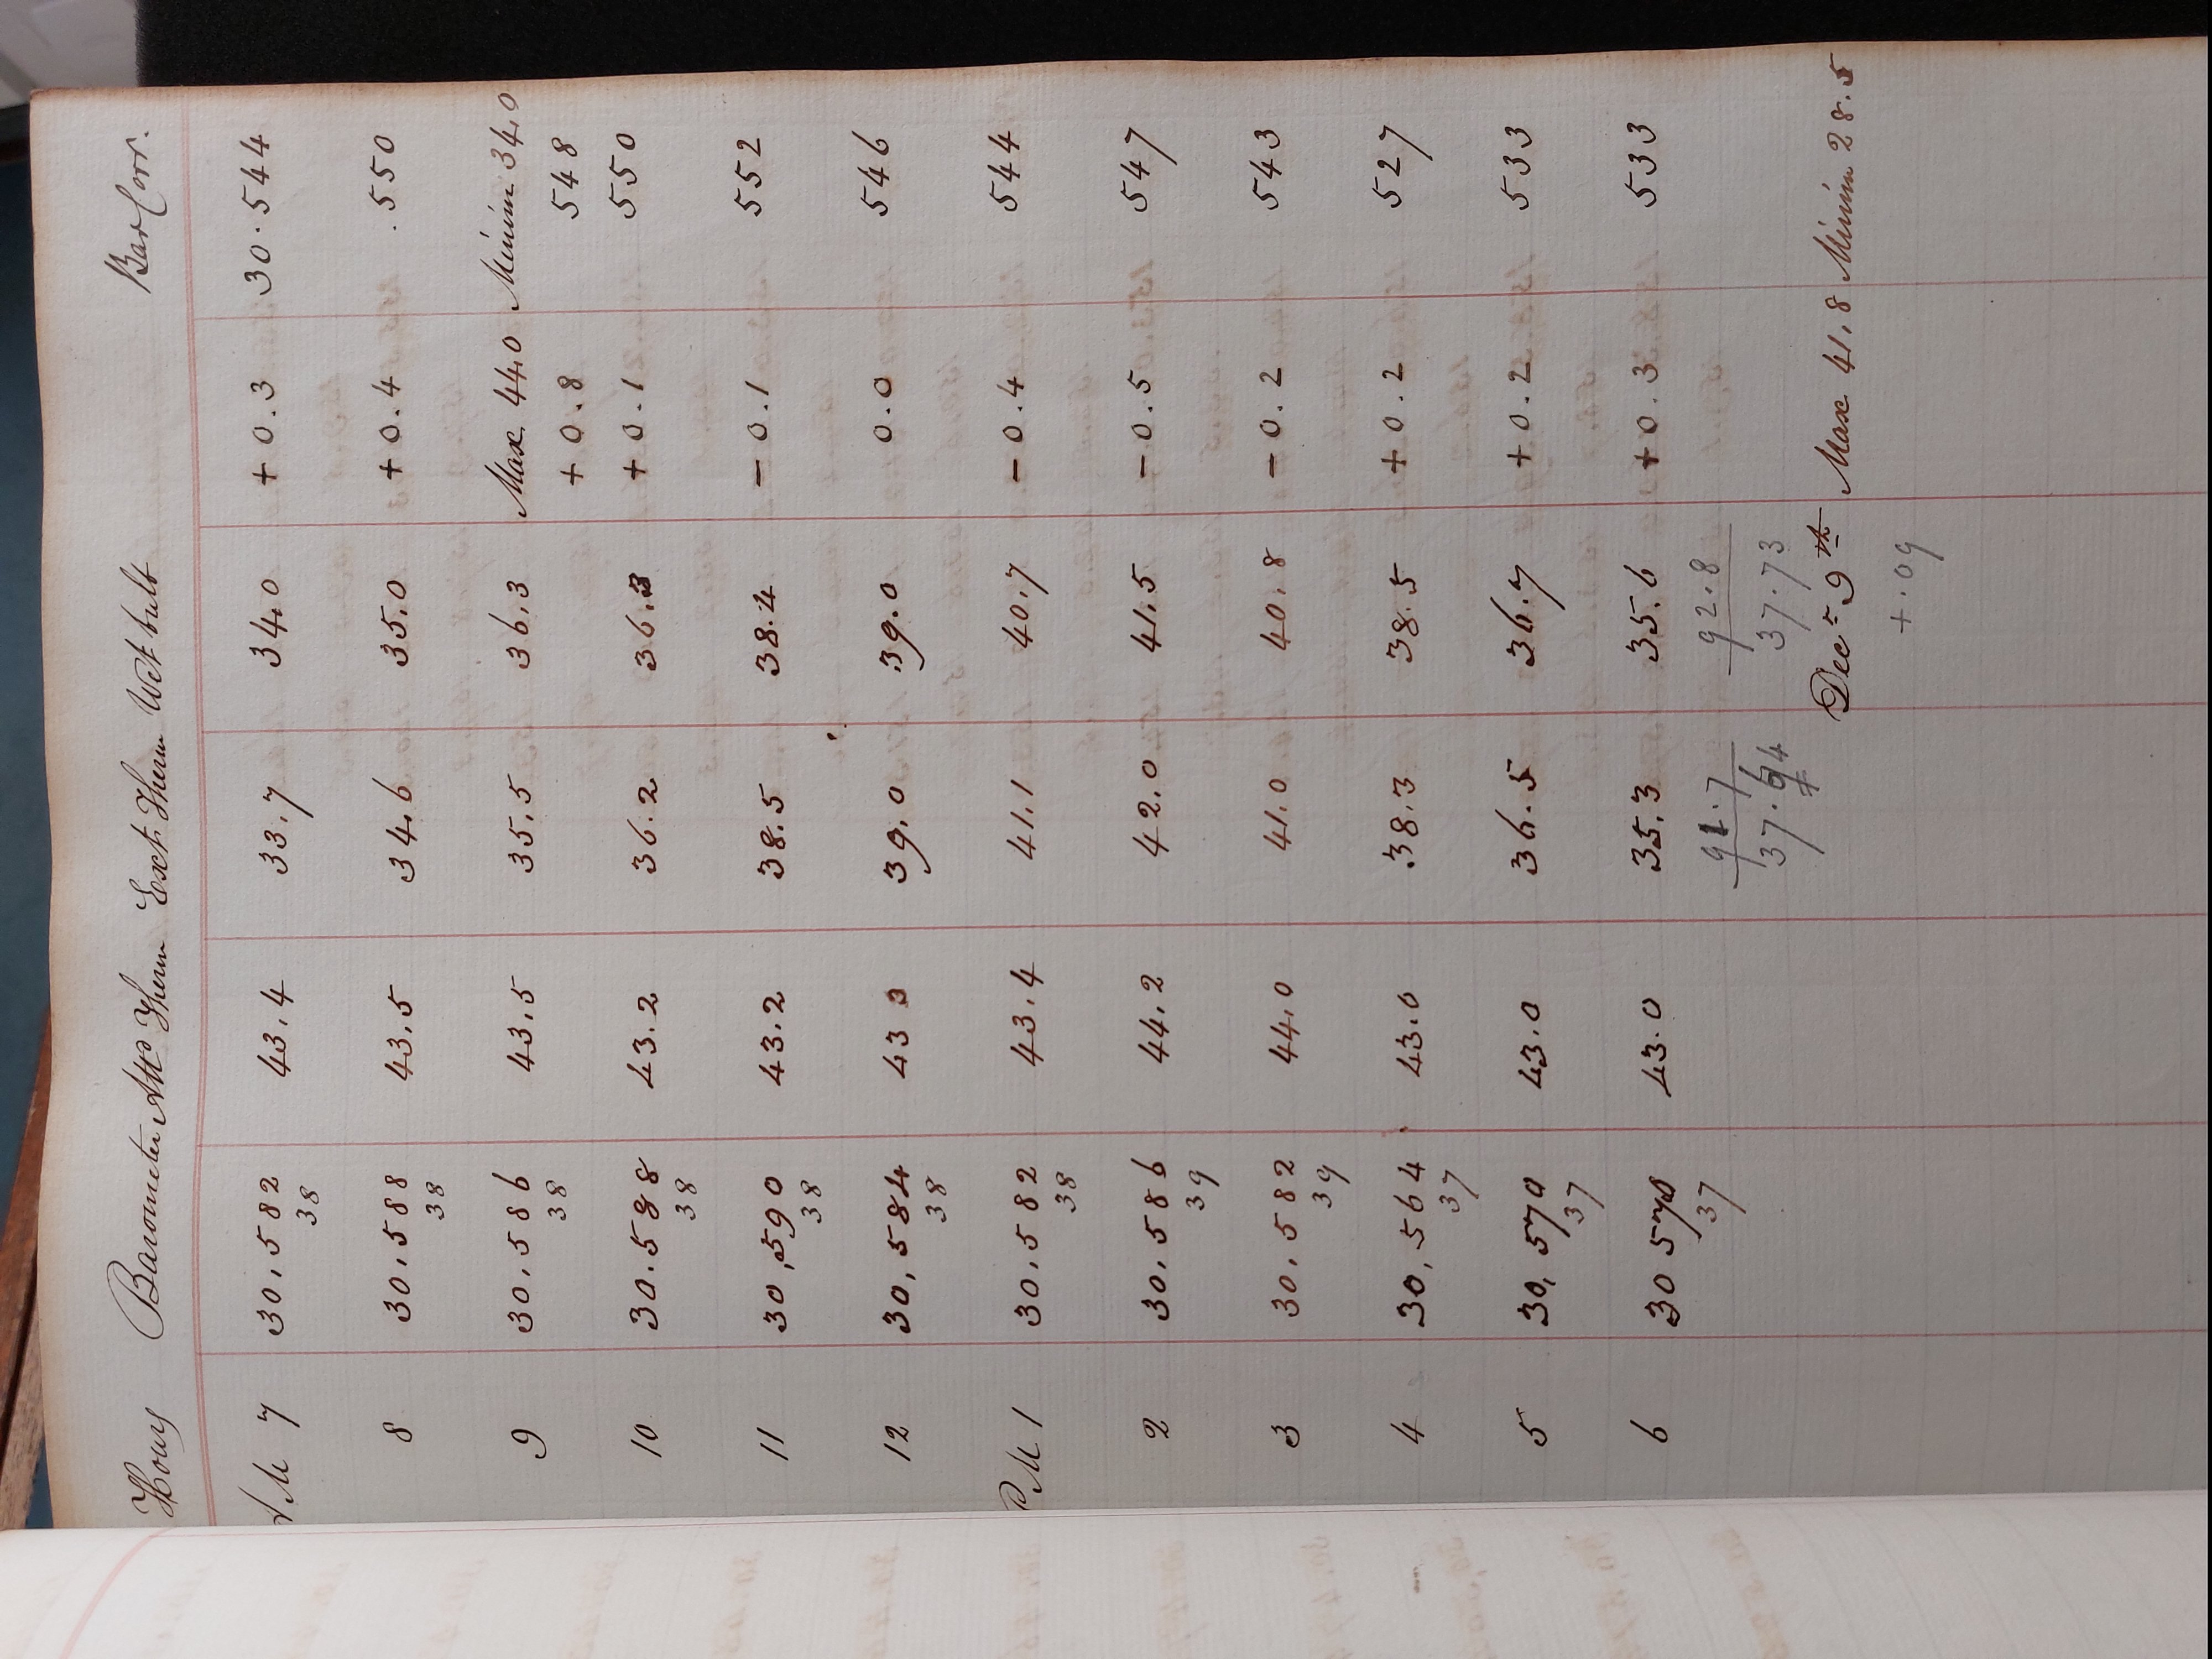 Hours Barometer Attd Therm Ext Therm Wet bulb Bar Corr.
AM 7 30,582 43,4 33,7 34,0 +0.3 30.544
38
8 30,588 43,5 34,6 35,0 +0.4 .550
38
9 30,586 43,5 35,5 36,3 Max 44,0 Minim 34,0
38 +0.8 548
10 30.588 43.2 36.2 36.3 +0.1 550
38
11 30,590 43.2 38.5 38.4 -0.1 552
38
12 30,584 43 0 39,0 39.0 0.0 546
38
PM 1 30,582 43,4 41,1 40,7 -0.4 544
38
2 30,586 44,2 42,0 41,5 -0.5 547
39
3 30,582 44,0 41,0 40,8 -0.2 543
39
4 30,564 43.0 38,3 38.5 +0.2 527
37
5 30,570 43.0 36.5 36.7 +0.2 533
37
6 30 570 43.0 35,3 35,6 +0.3 533
37 91.7 92.8
37.64 37.73
Decr 9th Max 41,8 Minim 28.5
+.09